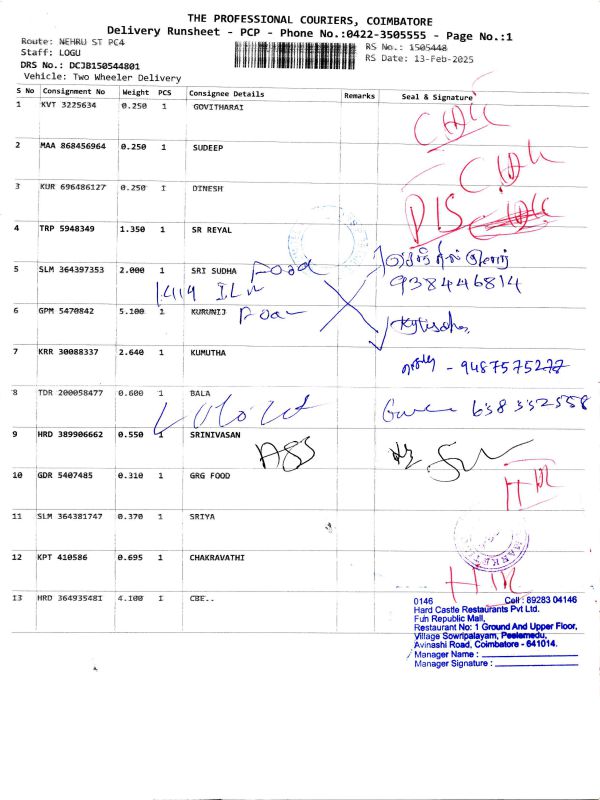 THE PROFESSIONAL COURIERS, COIMBATORE
Delivery Runsheet - PCP - Phone No.:0422-3505555 - Page No.:1
Route: NEHRU ST PC4
RS No.: 1505448
Staff: LOGU
RS Date: 13-Feb-2025
DRS No.: DCJB150544801
Vehicle: Two Wheeler Delivery
S No Consignment No Weight PCS Consignee Details Remarks Seal & Signature
1 KVT 3225634 0.250 1 GOVITHARAI
2 MAA 868456964 0.250 1 SUDEEP
3 KUR 696486127 0.250 1 DINESH
4 TRP 5948349 1.350 1 SR REYAL
5 SLM 364397353 2.000 1 SRI SUDHA Food
938446814
6 GPM 5470842 5.100 1 KURUNIJ
7 KRR 30088337 2.640 1 KUMUTHA
- 9487575277
8 TDR 200058477 0.600 1 BALA
9 HRD 389906662 0.550 1 SRINIVASAN
10 GDR 5407485 0.310 1 GRG FOOD
11 SLM 364381747 0.370 1 SRIYA
12 KPT 410586 0.695 1 CHAKRAVATHI
13 HRD 364935481 4.100 1 CBE..
0146 Cell : 89283 04146
Hard Castle Restaurants Pvt Ltd.
Fun Republic Mall,
Restaurant No: 1 Ground And Upper Floor,
Village Sowripalayam, Peelamedu,
Avinashi Road, Coimbatore - 641014.
Manager Name :
Manager Signature :